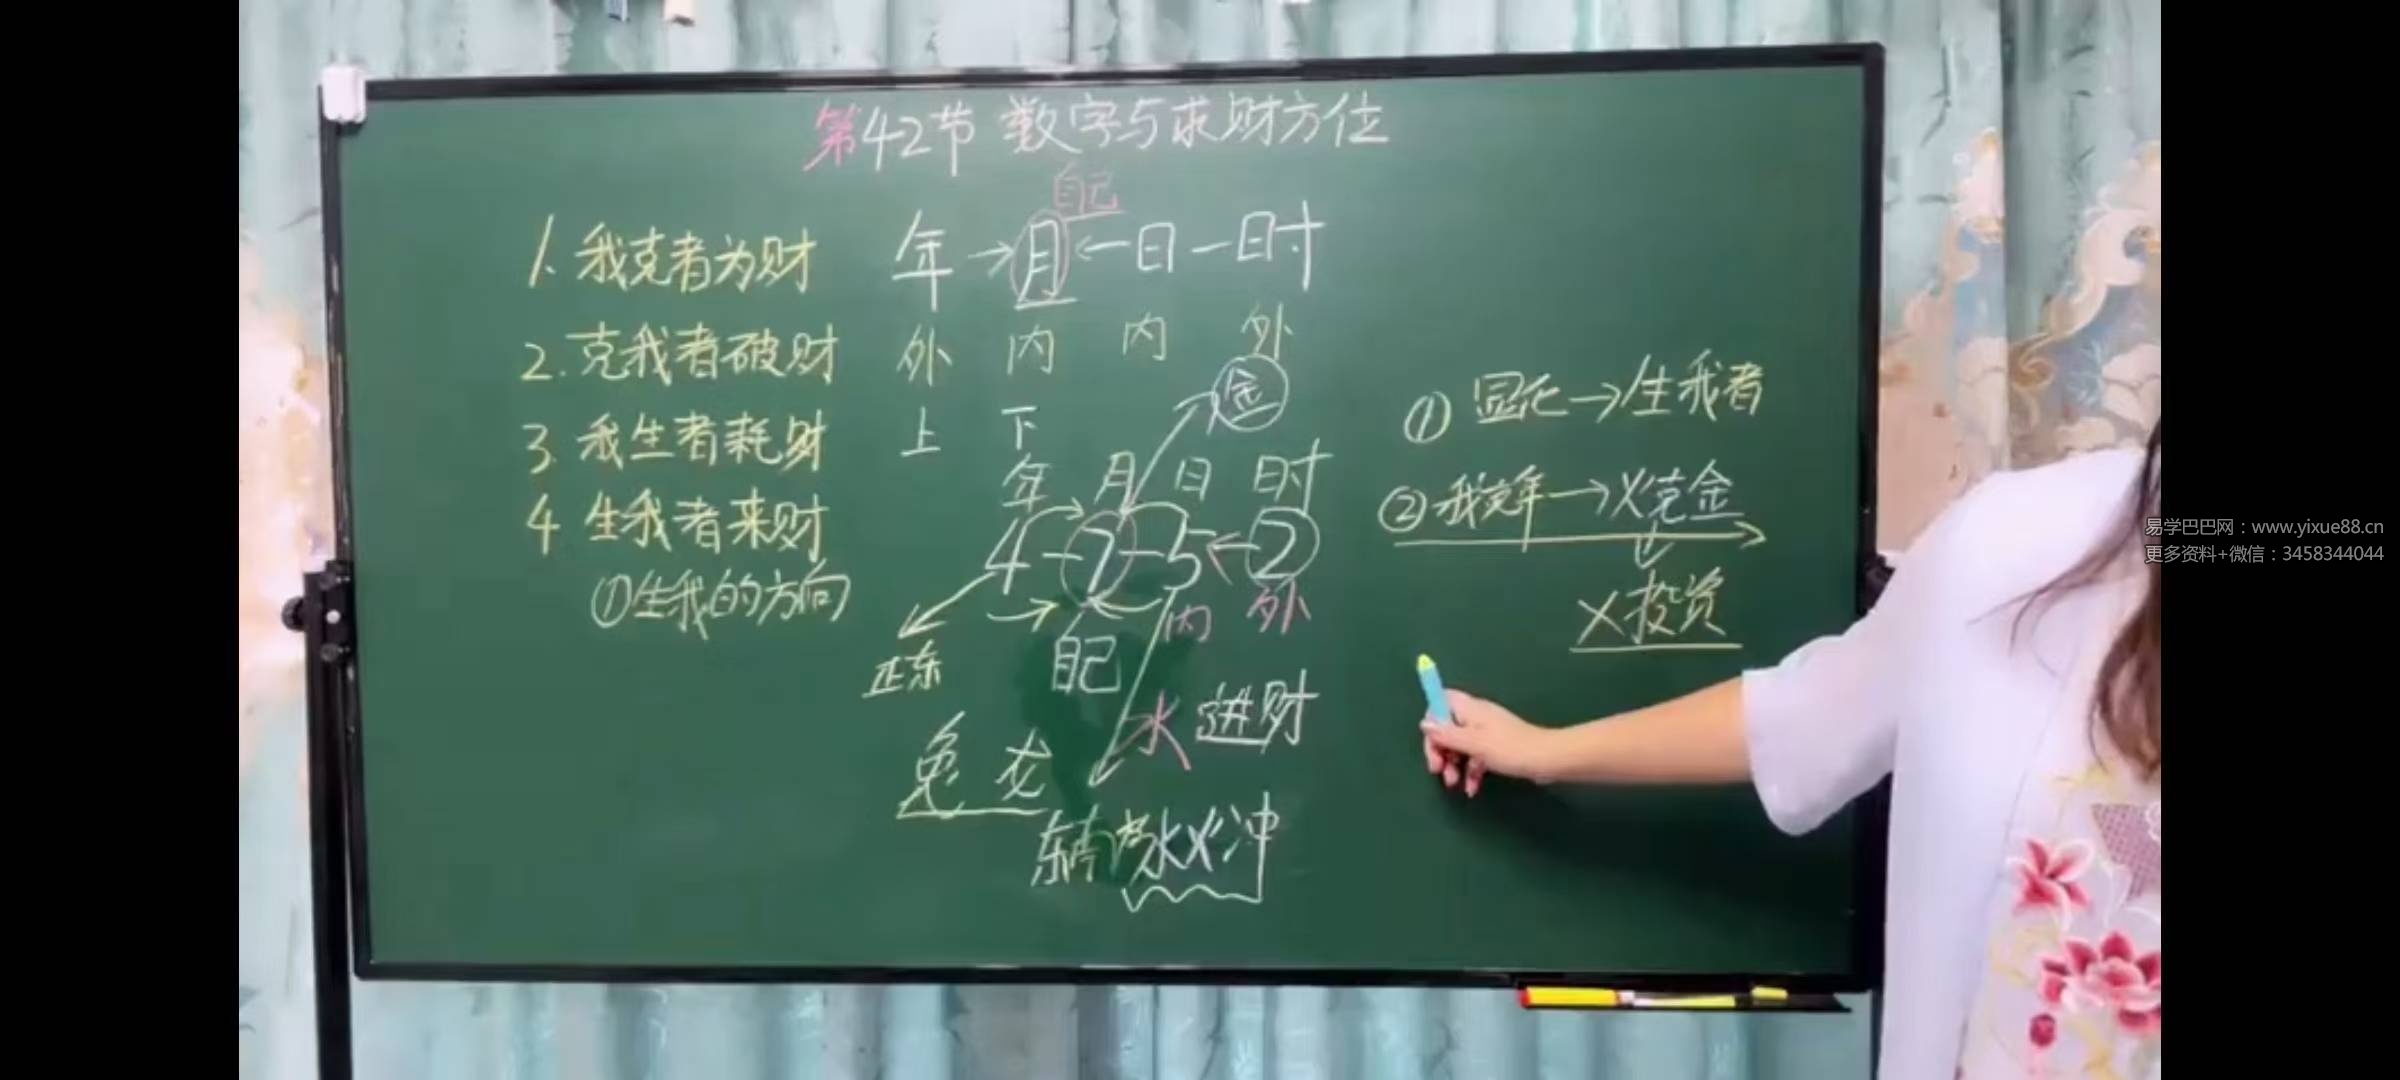 第42节 数字与求财方位
自己
年→月←日一时
外 内 内 外
上 下
1、我克者为财
2.克我者破财
3.我生者耗财
4 生我者来财
①生我的方向
金
年 月 日 时
4-7-5←2
内 外
正东
自己
水 进财
兔 龙
东南 水火冲
① →生我者
②我克年→火克金
火投资
易学巴巴网：www.yixue88.cn
更多资料+微信：3458344044